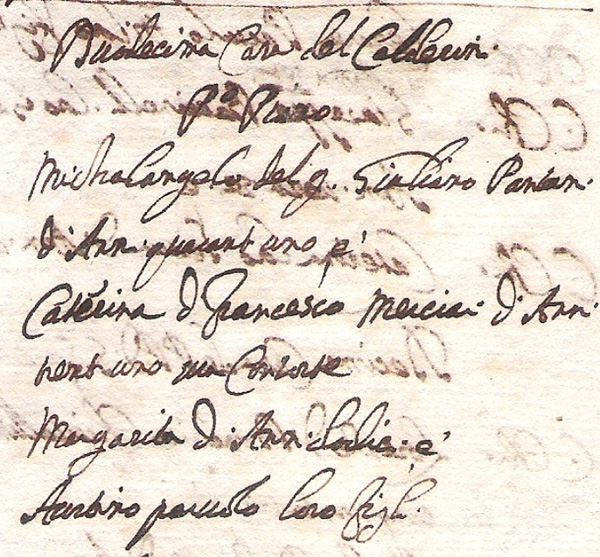 Duodecima Casa del Calderin.
P.º Piano
Michelangelo del q. Giuliano Pantan.
d'Ann. quarant'uno e'
Caterina d. Francesco d'Ann.
trent'uno sua Consorte
Margarita d'Ann. dodic. e'
piccolo loro figl.